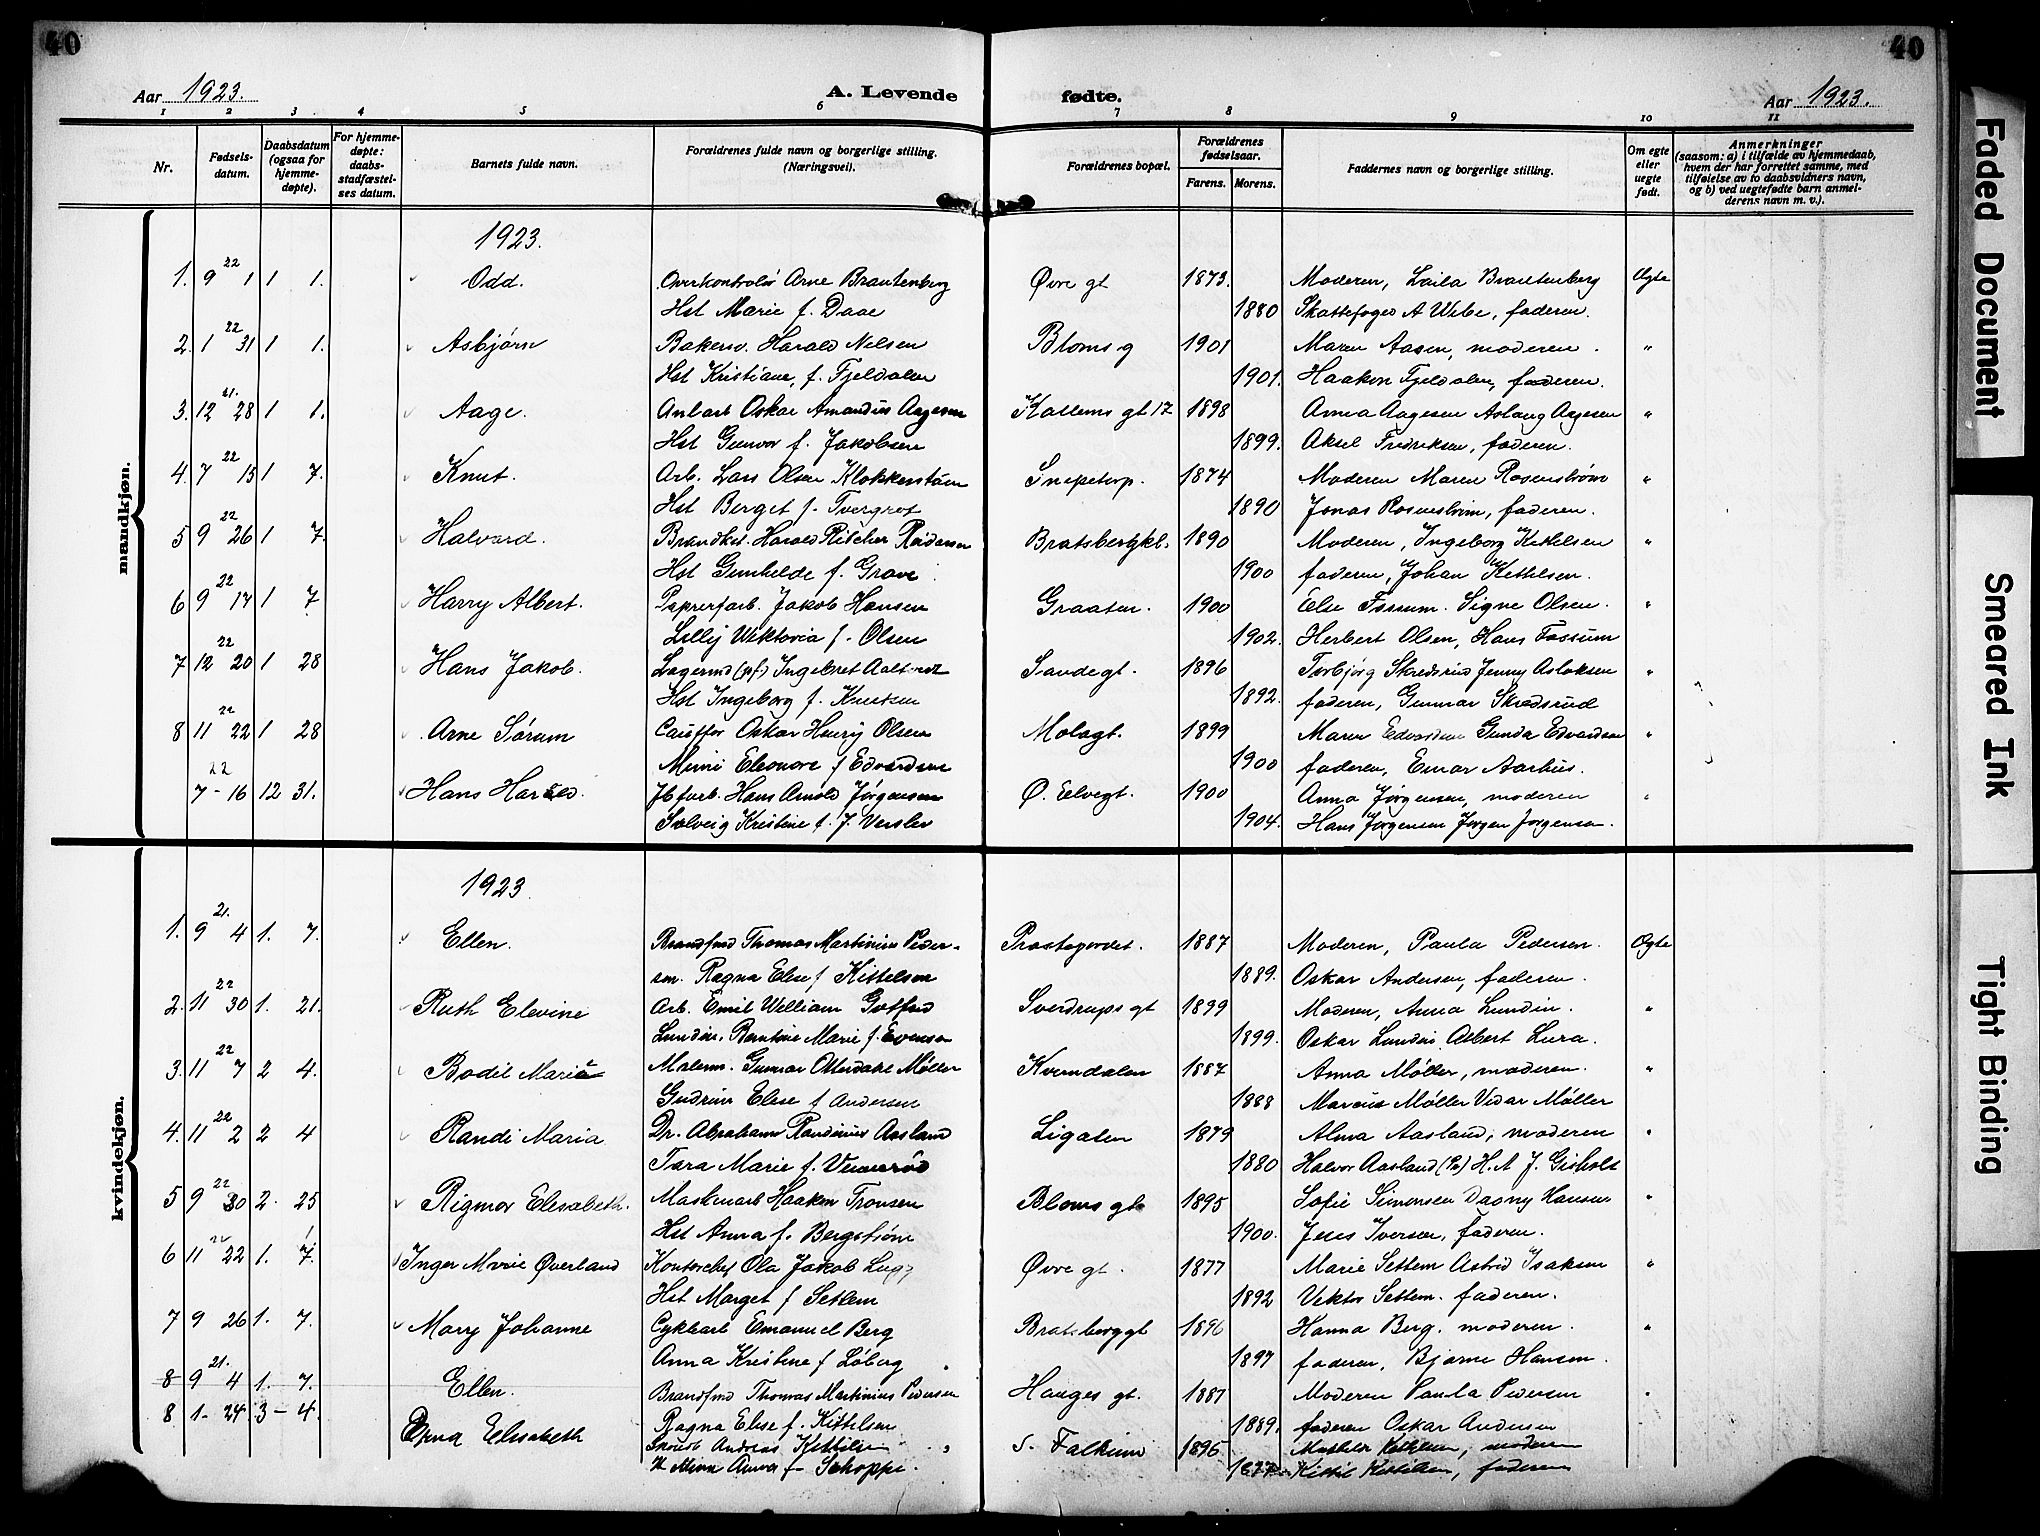 40
40
Aar 1923.
A. Levende
fødte.
Aar 1923.
1 2 3 4 5 6 7 8 9 10 11
Nr.
Fødsels-
datum.
Daabsdatum
(ogsaa for
hjemme-
døpte).
For hjemme-
døpte:
daabs-
stadfæstel-
ses datum.
Barnets fulde navn.
Forældrenes fulde navn og borgerlige stilling.
(Næringsvei).
Forældrenes bopæl.
Forældrenes
fødselsaar.
Farens. Morens.
Faddernes navn og borgerlige stilling.
Om egte
eller
uegte
født.
Anmerkninger
(saasom: a) i tilfælde av hjemmedaab,
hvem der har forrettet samme, med
tilføielse av to daabsvidners navn,
og b) ved uegtefødte barn anmel-
derens navn m. v.).
mandkjøn.
1923.
1. 9 22 1 1 1. Odd. Overkontrolør Arne Brautenberg Øvre gt 1873. Moderen, Laila Brautenberg Ægte
Hst Marie f. Daae 1880 Skattefoged A Wibe, faderen.
2. 1 22 31 1 1. Asbjørn Bakersv. Harald Nilsen Bloms g 1901 Maren Aasen, moderen. "
Hst Kristiane, f. Fjeldalen 1901. Haakon Fjeldalen, faderen.
3. 12 21. 28 1 1. Aage. Anlarb Oskar Amandus Aagesen 17 1898 Anna Aagesen Aslaug Aagesen "
Hst Gunvor f. Jakobsen 1899. Aksel Fredriksen, faderen.
4. 7 22 15 1 7. Knut. Arb. Lars Olsen Klokkerstuen Snipetorp. 1874 Moderen Maren Rosenstrøm "
Hst Berget f. 1890 Jonas Rosenstrøm, faderen.
5 9 22 26 1 7. Halvard. Harald Bratsbergkl. 1890 Moderen, Ingeborg Kittelsen "
Hst Gunhilde f. Grave 1900 faderen, Johan Kittelsen.
6 9 22 17 1 7 Harry Albert. Papirfarb. Jakob Hansen Graaten. 1900 Fossum. Signe Olsen. "
Lilly Viktoria f. Olsen 1902. Herbert Olsen, Hans Fossum
7 12 22 20 1 28 Hans Jakob. Ingebret Sandegt. 1896 Torbjørg Skredsrud Jenny Aslaksen "
Hst Ingeborg f. Knutsen 1892. faderen, Gunnar Skredsrud
8 11 22 22 1 28 Arne Sørum Oskar Henry Olsen Molagt. 1899 Maren Edvardsen Gunda Edvardsen "
Mimi Eleonore f Edvardsen 1900 faderen, Einar Aarhus.
22 7 - 16 12 31. Hans Harald. Hans Arnold Jørgensen Ø. Elvegt. 1900 Anna Jørgensen, moderen "
Solveig Kristine f. 1904. Hans Jørgensen Jørgen Jørgensen.
kvindekjøn.
1923
1. 9 21. 4 1. 7. Ellen. Brandfmd Thomas Martinius Peder- Præstegordet. 1887 Moderen, Paula Pedersen. Ægte
sen. Ragna Elise f Kittelsen 1889. Oskar Andersen, faderen.
2. 11 22 30 1. 21. Ruth Elevine Arb. Emil William Gotfred Sverdrups gt 1899 Moderen, Anna Lundin. "
Lundin. Marie f. Evensen 1899. Oskar Lundin Albert Lura.
3. 11 22 7 2 4. Bodil Marie Malerm. Gunnar Otterdahl Møller Kverndalen 1887 Anna Møller, moderen. "
Gudrun Elise f Andersen 1888 Marcus Møller Vidar Møller
4. 11 22 2 2 4 Randi Maria Dr. Abraham Aasland Ligaten 1879 Alma Aasland, moderen "
Tara Marie f. 1880 Halvor Aasland H. A J. Gisholt
5 9 22 30 2. 25 Rigmor Elisabeth. Maskinarb Haakon Tronsen Bloms gt 1895 Sofie Simonsen Dagny Hansen "
Hst Anna f. Bergstrøm 1900. Jens Iversen, faderen.
6 11 22 22 1. 7. Inger Marie Øverland Kontorchef Ola Jakob Øvre gt. 1877 Marie Settem Astrid Isaksen "
Hst Marget f Setlem 1892 Viktor Settem. faderen.
7 9 26 1. 7. Mary Johanne Cyklearb Emanuel Berg Bratsberggt 1896 Hanna Berg. moderen. "
Anna Kristine f Løberg 1897 faderen, Bjarne Hansen.
8 9 21. 4 1. 7. Ellen. Brandfmd Thomas Martinius Pedersen Hauges gt. 1887 Moderen Paula Pedersen "
Ragna Elise f. Kittelsen 1889. faderen Oskar Andersen
8 1 - 24 3 - 4. Erna Elisabeth Andreas Kittilsen S. Falkum 1895 Kittilsen, moderen
Anna f. Schoppe. Kittil Kittilsen, faderen
Faded Document
Smeared Ink
Tight Binding